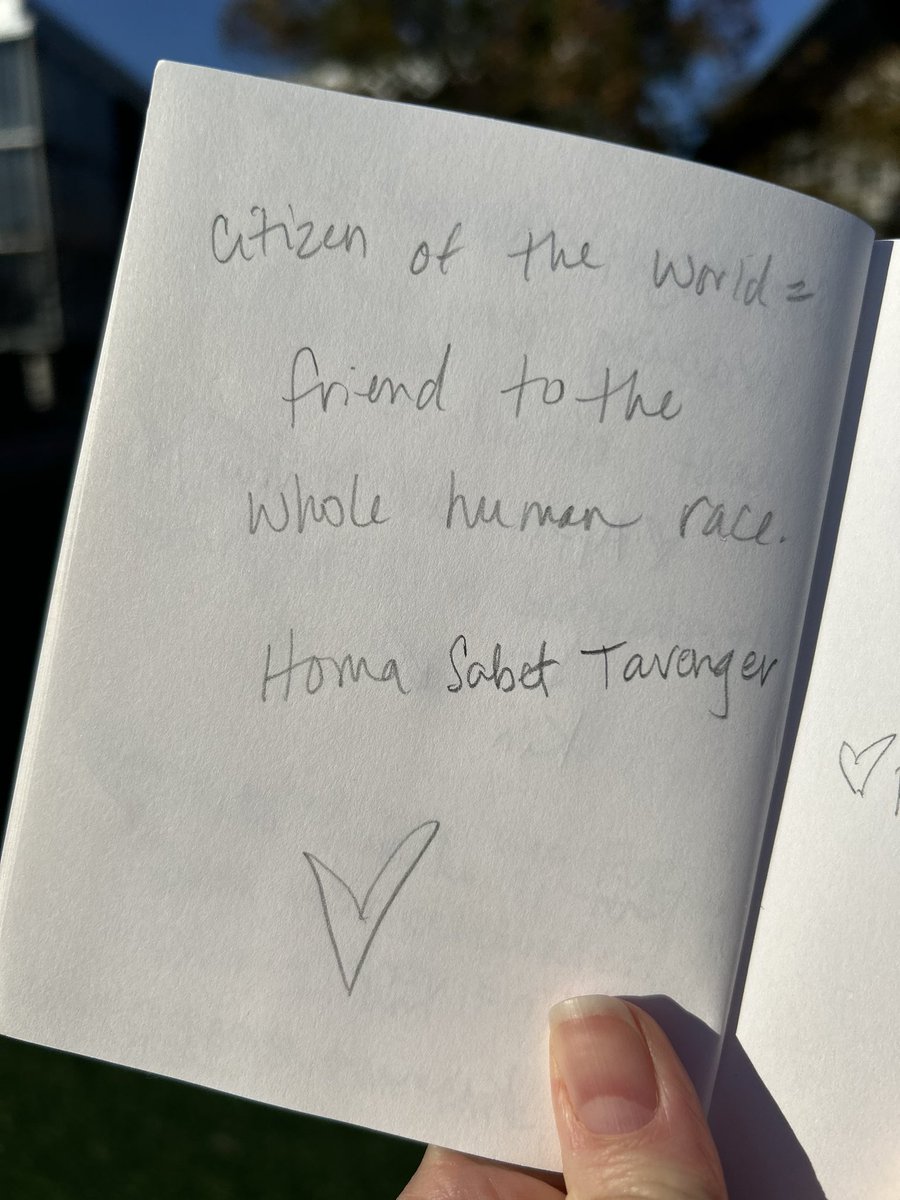 citizen of the world =
friend to the
whole human race.
Homa Sabet Tavenger